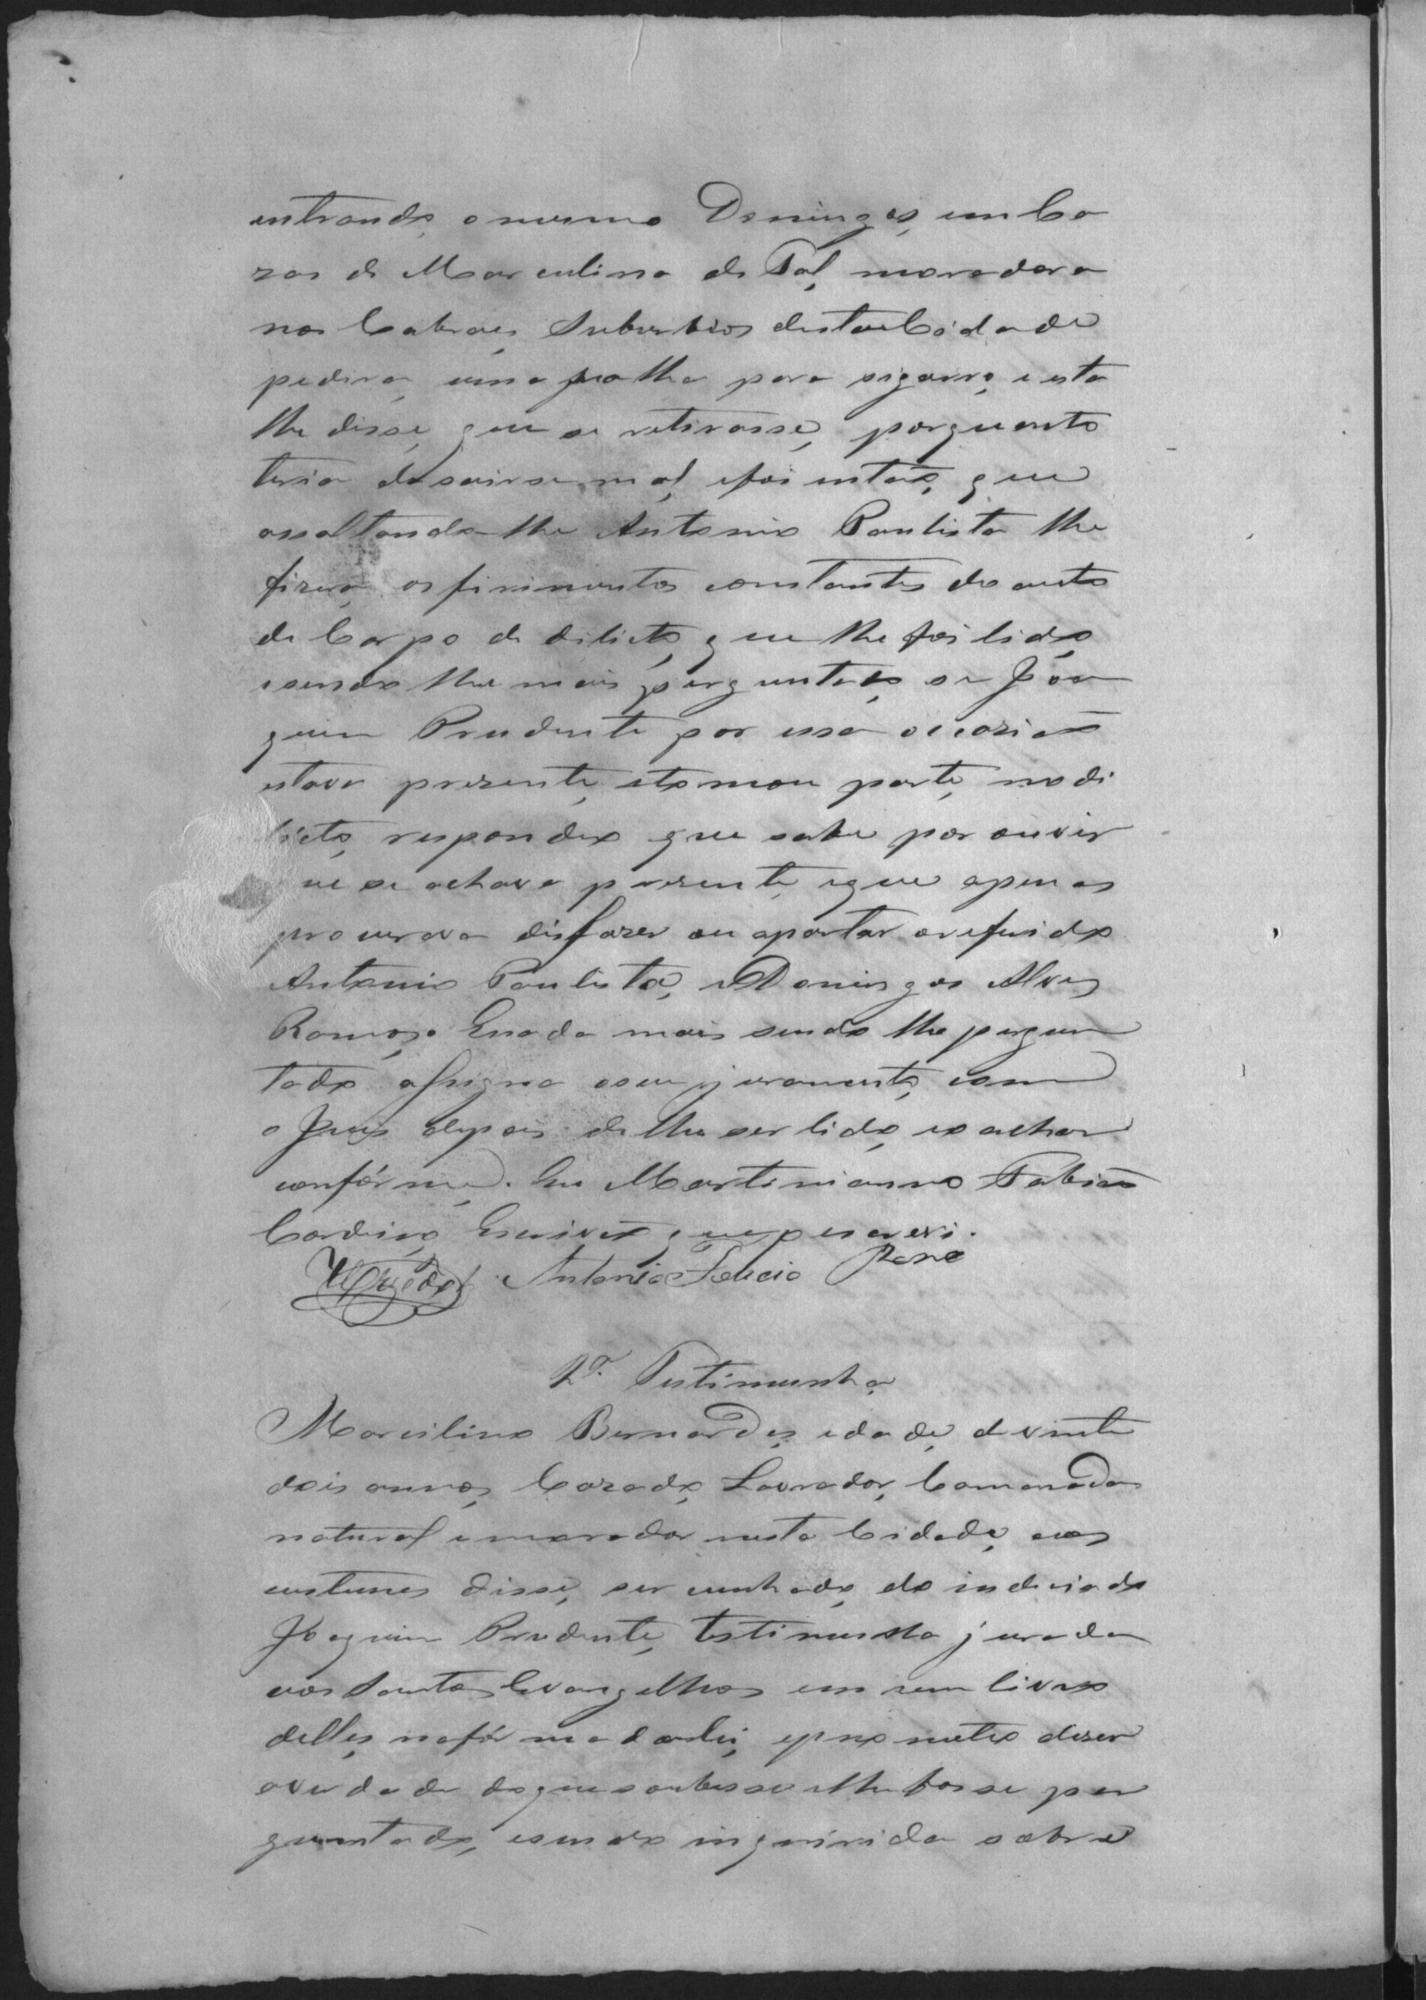 entrando, o mesmo Domingos, em Ca
zas de Marculina de Tal, moradora
nos Cabraes, Suburbios desta Cidade
pedira, uma palha para sigarro, e esta
lhe disse, que se retirasse, porquanto
teria de sair se mal, e foi então, que
assaltando-lhe Antonio Paulista lhe
fizera, os firimentos constantes do auto
de Corpo de dilicto, que lhe foi lido,
e sendo lhe mais perguntado, se Joa
quim Prudente por essa occazião
estava prezente, e tomou parte, no di
licto, respondeo que sabe por ouvir
que se achava prezente, e que apenas
procurava disfazer ou apartar o referido
Antonio Paulista, e Domingos Alves
Ramos, e nada mais sendo lhe pergun
tado assigna o seu juramento, com
o Juis depois de lhe ser lido, e o achar
confórme. Eu Martinianno Fabião
Cardiro, Escrivão, que o escrevi.
Antonio Felicio
2ª. Testimunha
Marcilino Bernardes, edade, de vinte
dois annos, Cazado, Lavrador, Camarada
natural e morador nesta Cidade, aos
custumes disse, ser cunhado, do indiciado
Joaquim Prudente, testimunha jurada
aos Santos Evangelhos em um livro
delles, na fórma da Lei, e prometeo dizer
a verdade do que soubesse e lhe fosse per
guntado, e sendo inquirida sobre